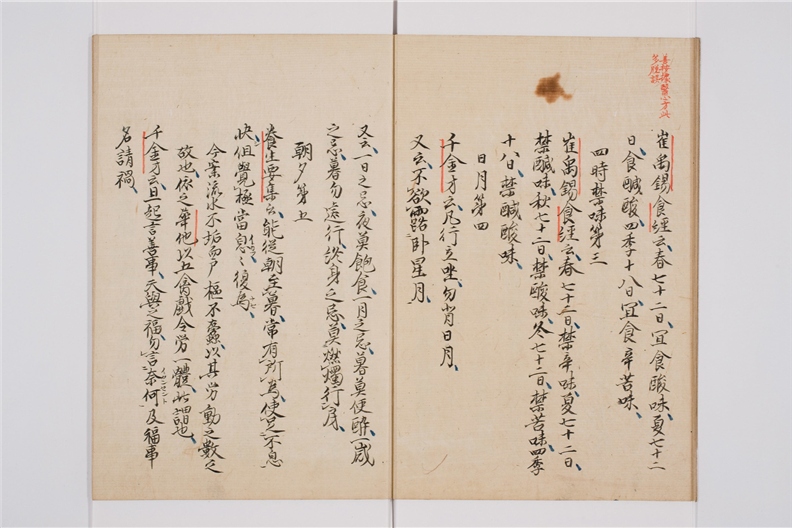 崔禹錫食經云春七十二日冝食酸味夏七十二
日食鹹酸四季十八日冝食辛苦味
四時禁味第三
崔禹錫食經云春七十二日禁辛味夏七十二日
禁鹹味秋七十二日禁酸味冬七十二日禁苦味四季
十八日禁鹹酸味
日月第四
千金方云凡行立坐勿背日月
又云不欲露臥星月
又云一日之忌夜莫飽食一月之忌暮莫使醉一歳
之忌暮勿遠行終身之忌莫燃燭行房
朝夕第五
養生要集云能從朝至暮常有所為使足不息
快但覺極當息々復為
今案流水不垢而戸樞不蠹以其勞動之數之
故也依之華他以五禽戲令勞一體此謂也
千金方云旦起言善事天與之福勿言奈何及福事
名請禍